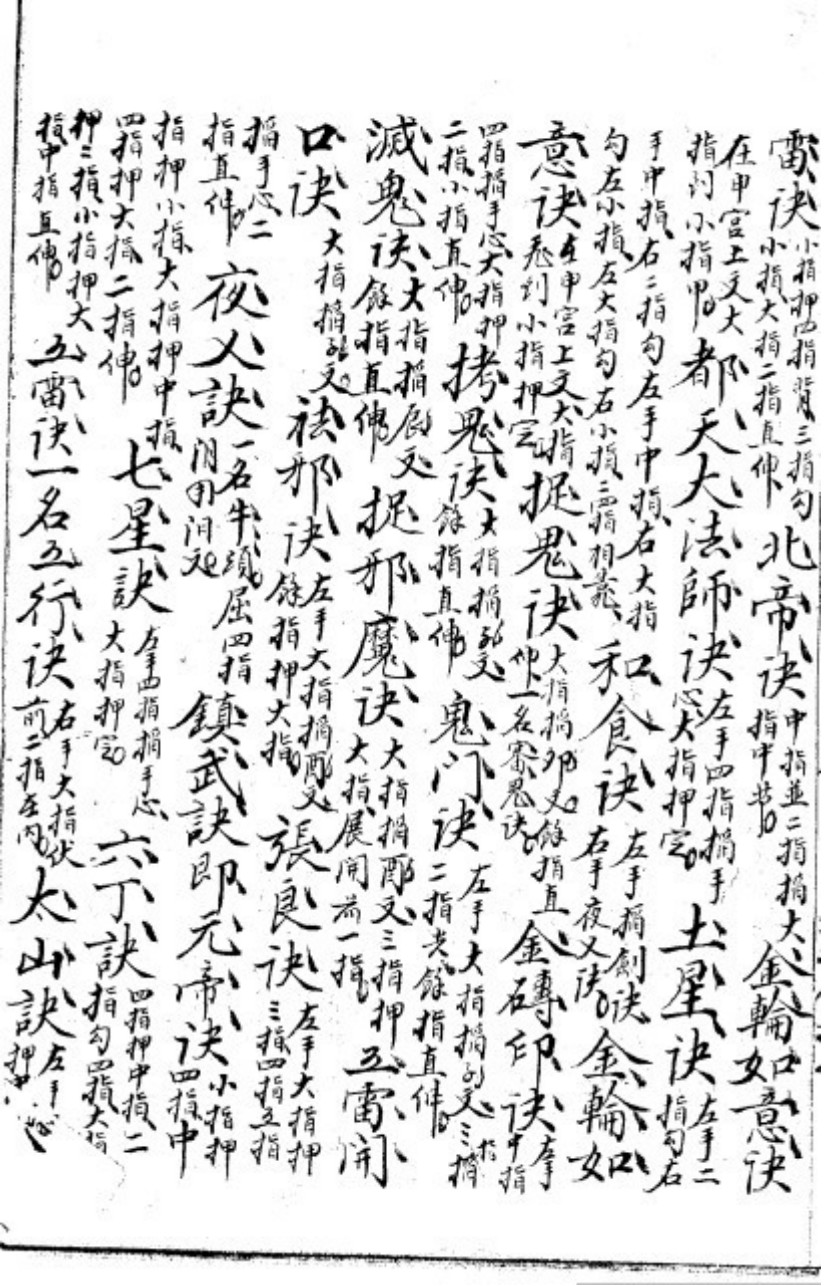 雷诀小指押四指背三指勾小指大指二指直伸北帝诀中指並二指搯大指中节金輪如意诀
在中宫上文大指到小指甲都天大法師诀左手四指搯手心大指押定土星诀左手二指勾右
手中指右二指勾左手中指右大指勾左小指左大指勾右小指二四指相靠和食诀左手搯劍诀右手夜乂诀金輪如
意诀在甲宫上文大指飛到小指押定捉鬼诀大指搯卯文餘指直伸一名寨鬼诀金磚印诀左手中指
四指搯手心大指押二指小指直伸拷鬼诀大指搯文餘指直伸鬼门诀左手大指搯文三指二指尖餘指直伸
滅鬼诀大指搯辰文餘指直伸捉邪魔诀大指搯酉文三指押大指展開前一指五雷開
口诀大指搯文祛邪诀左手大指搯酉文餘指押大指張良诀左手大指押三指四指五指
搯手心二指直伸夜乂訣一名牛頭屈四指鎮武訣即元帝诀小指押四指中
指押小指大指押中指四指押大指二指伸七星訣左手四指搯手心大指押定六丁訣四指押中指二指勾四指大指
押二指小指押大指中指直伸五雷诀一名五行诀右手大指伏前二指在内太山訣左手押